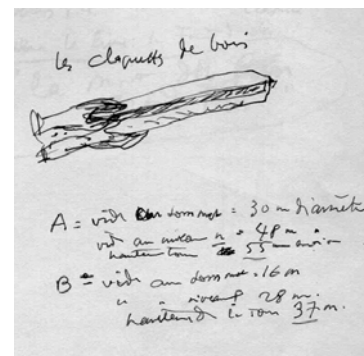 Les claquettes de bois
A = vide au sommet = 30 m diamètre
vide au niveau = 48 m
hauteur tour 55 m environ
B = vide au sommet = 16 m
" " niveau 28 m.
hauteur de la tour 37 m.